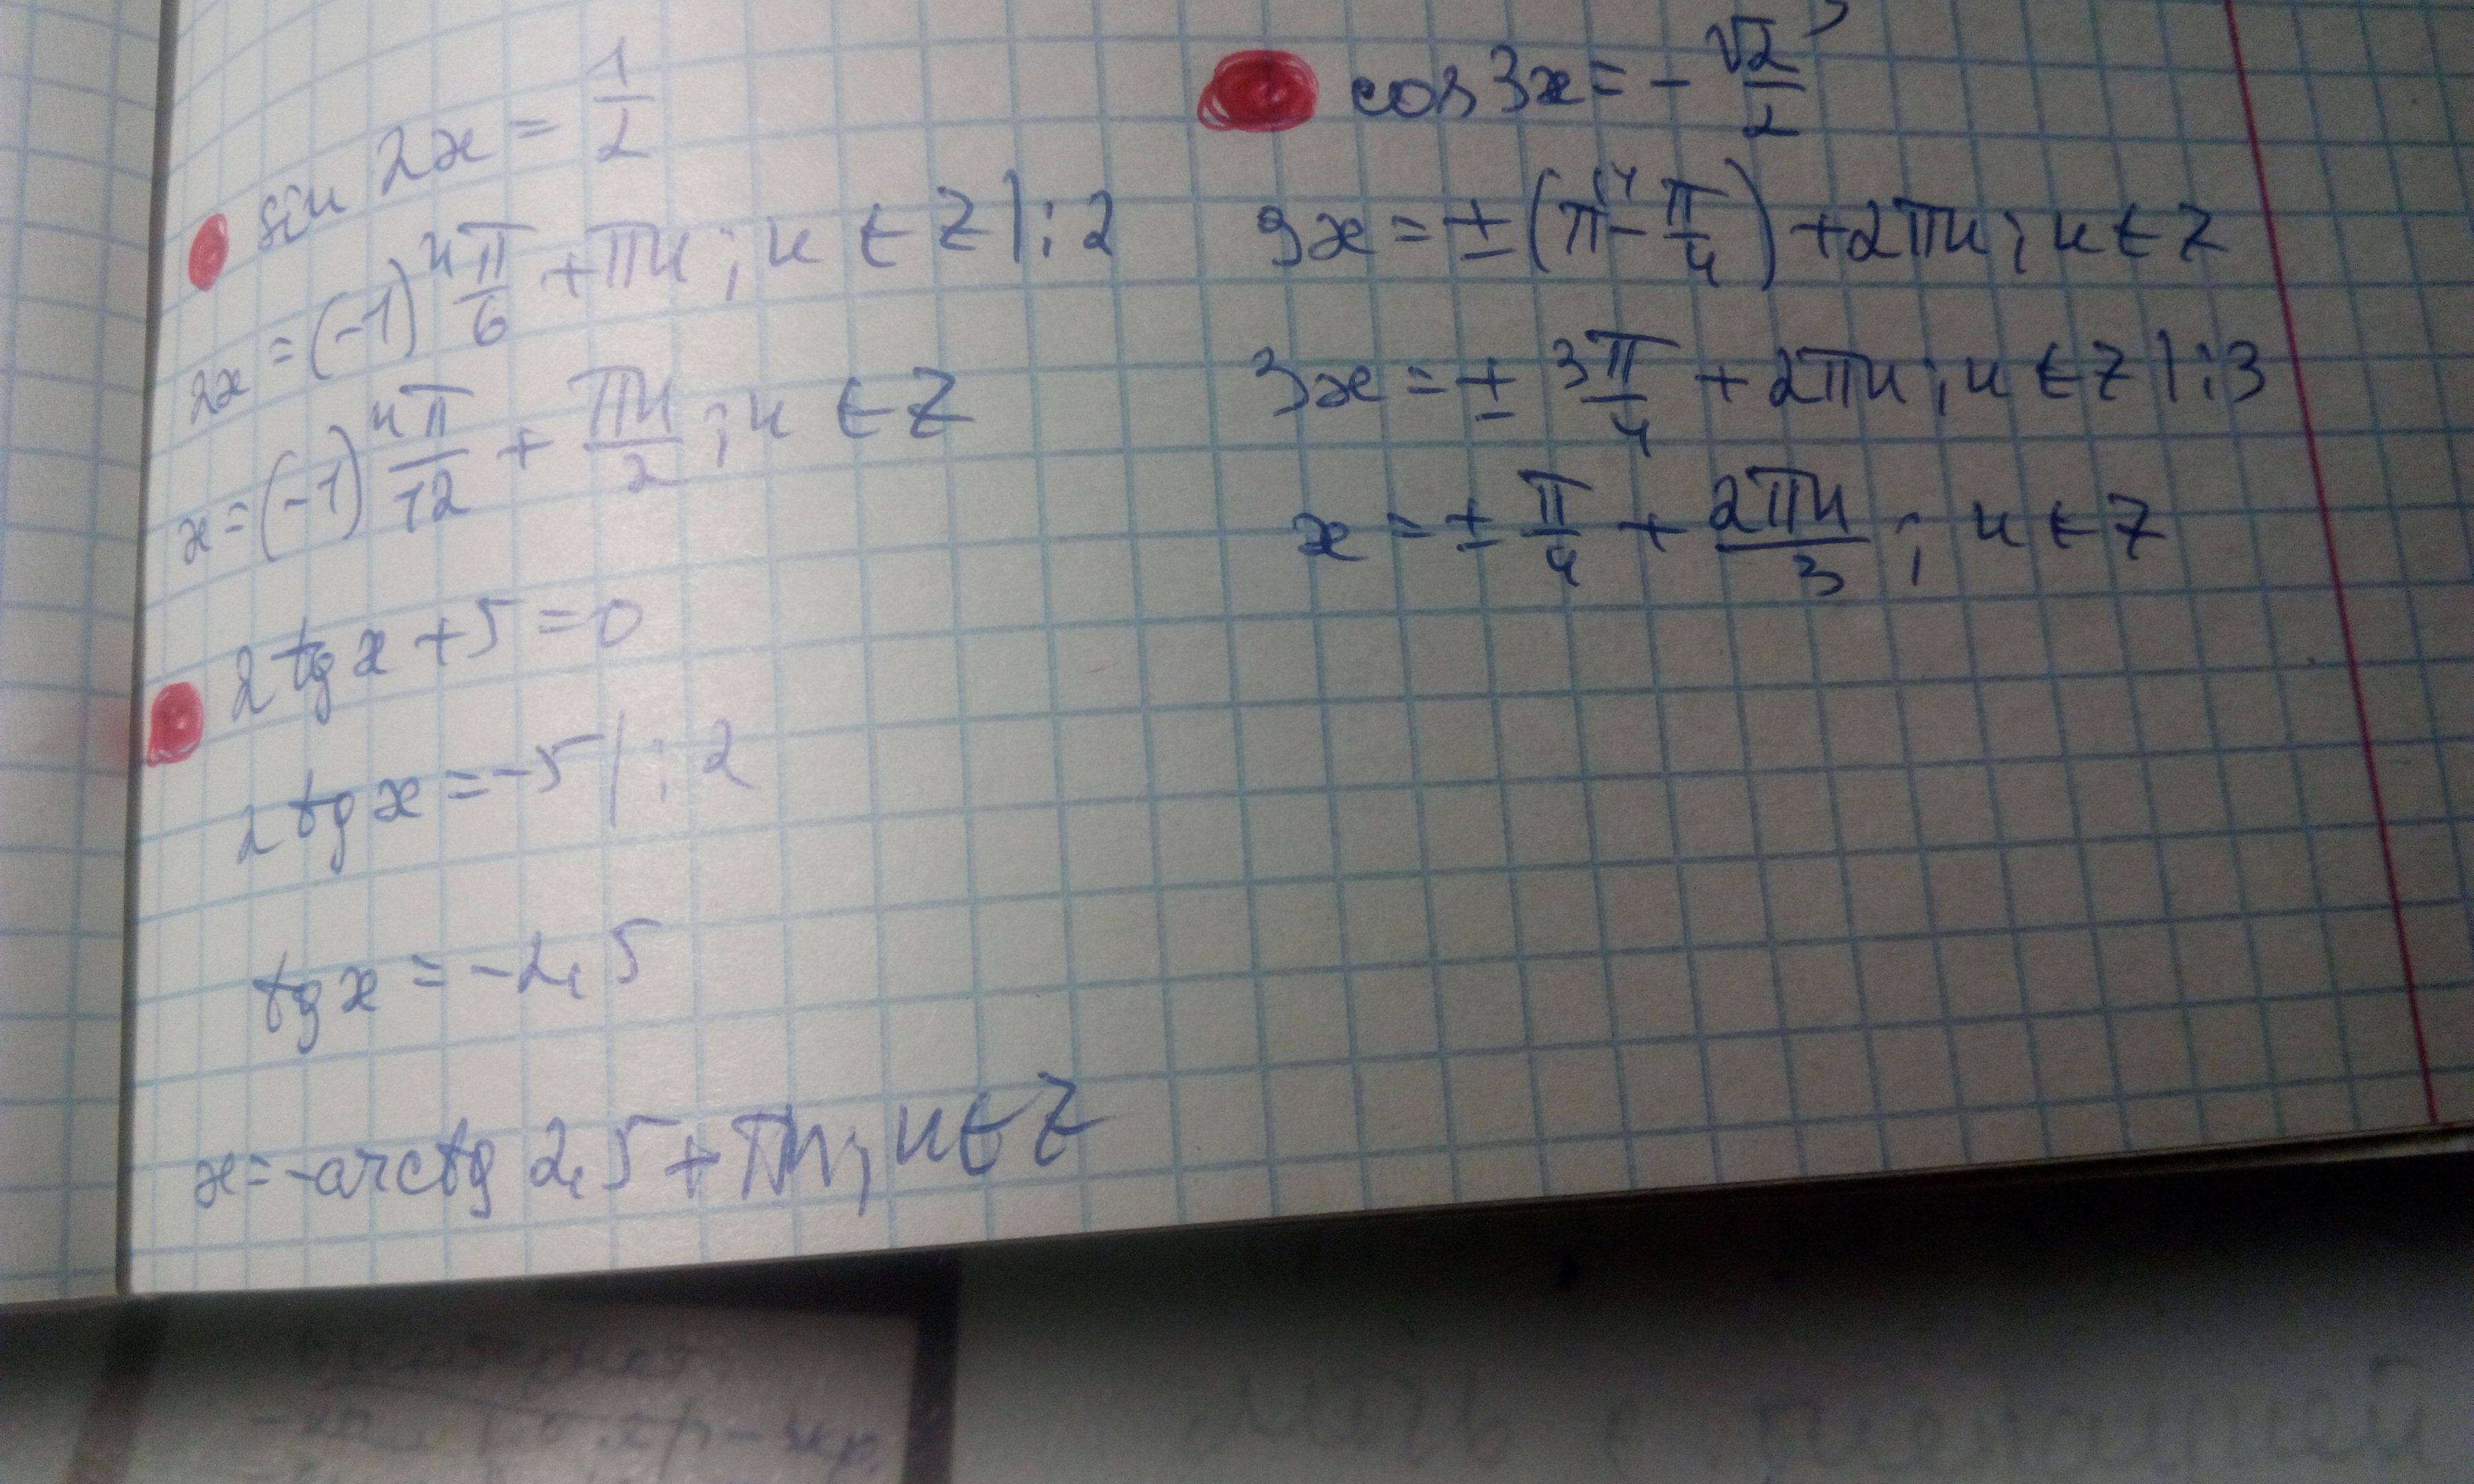 sin 2x = 1/2
2x = (-1)ⁿ π/6 + πn; n ∈ Z | : 2
x = (-1)ⁿ π/12 + πn/2; n ∈ Z
2 tg x + 5 = 0
2 tg x = -5 | : 2
tg x = -2,5
x = -arctg 2,5 + πn; n ∈ Z
cos 3x = - √2/2
3x = ± (π - π/4) + 2πn; n ∈ Z
3x = ± 3π/4 + 2πn; n ∈ Z | : 3
x = ± π/4 + 2πn/3; n ∈ Z